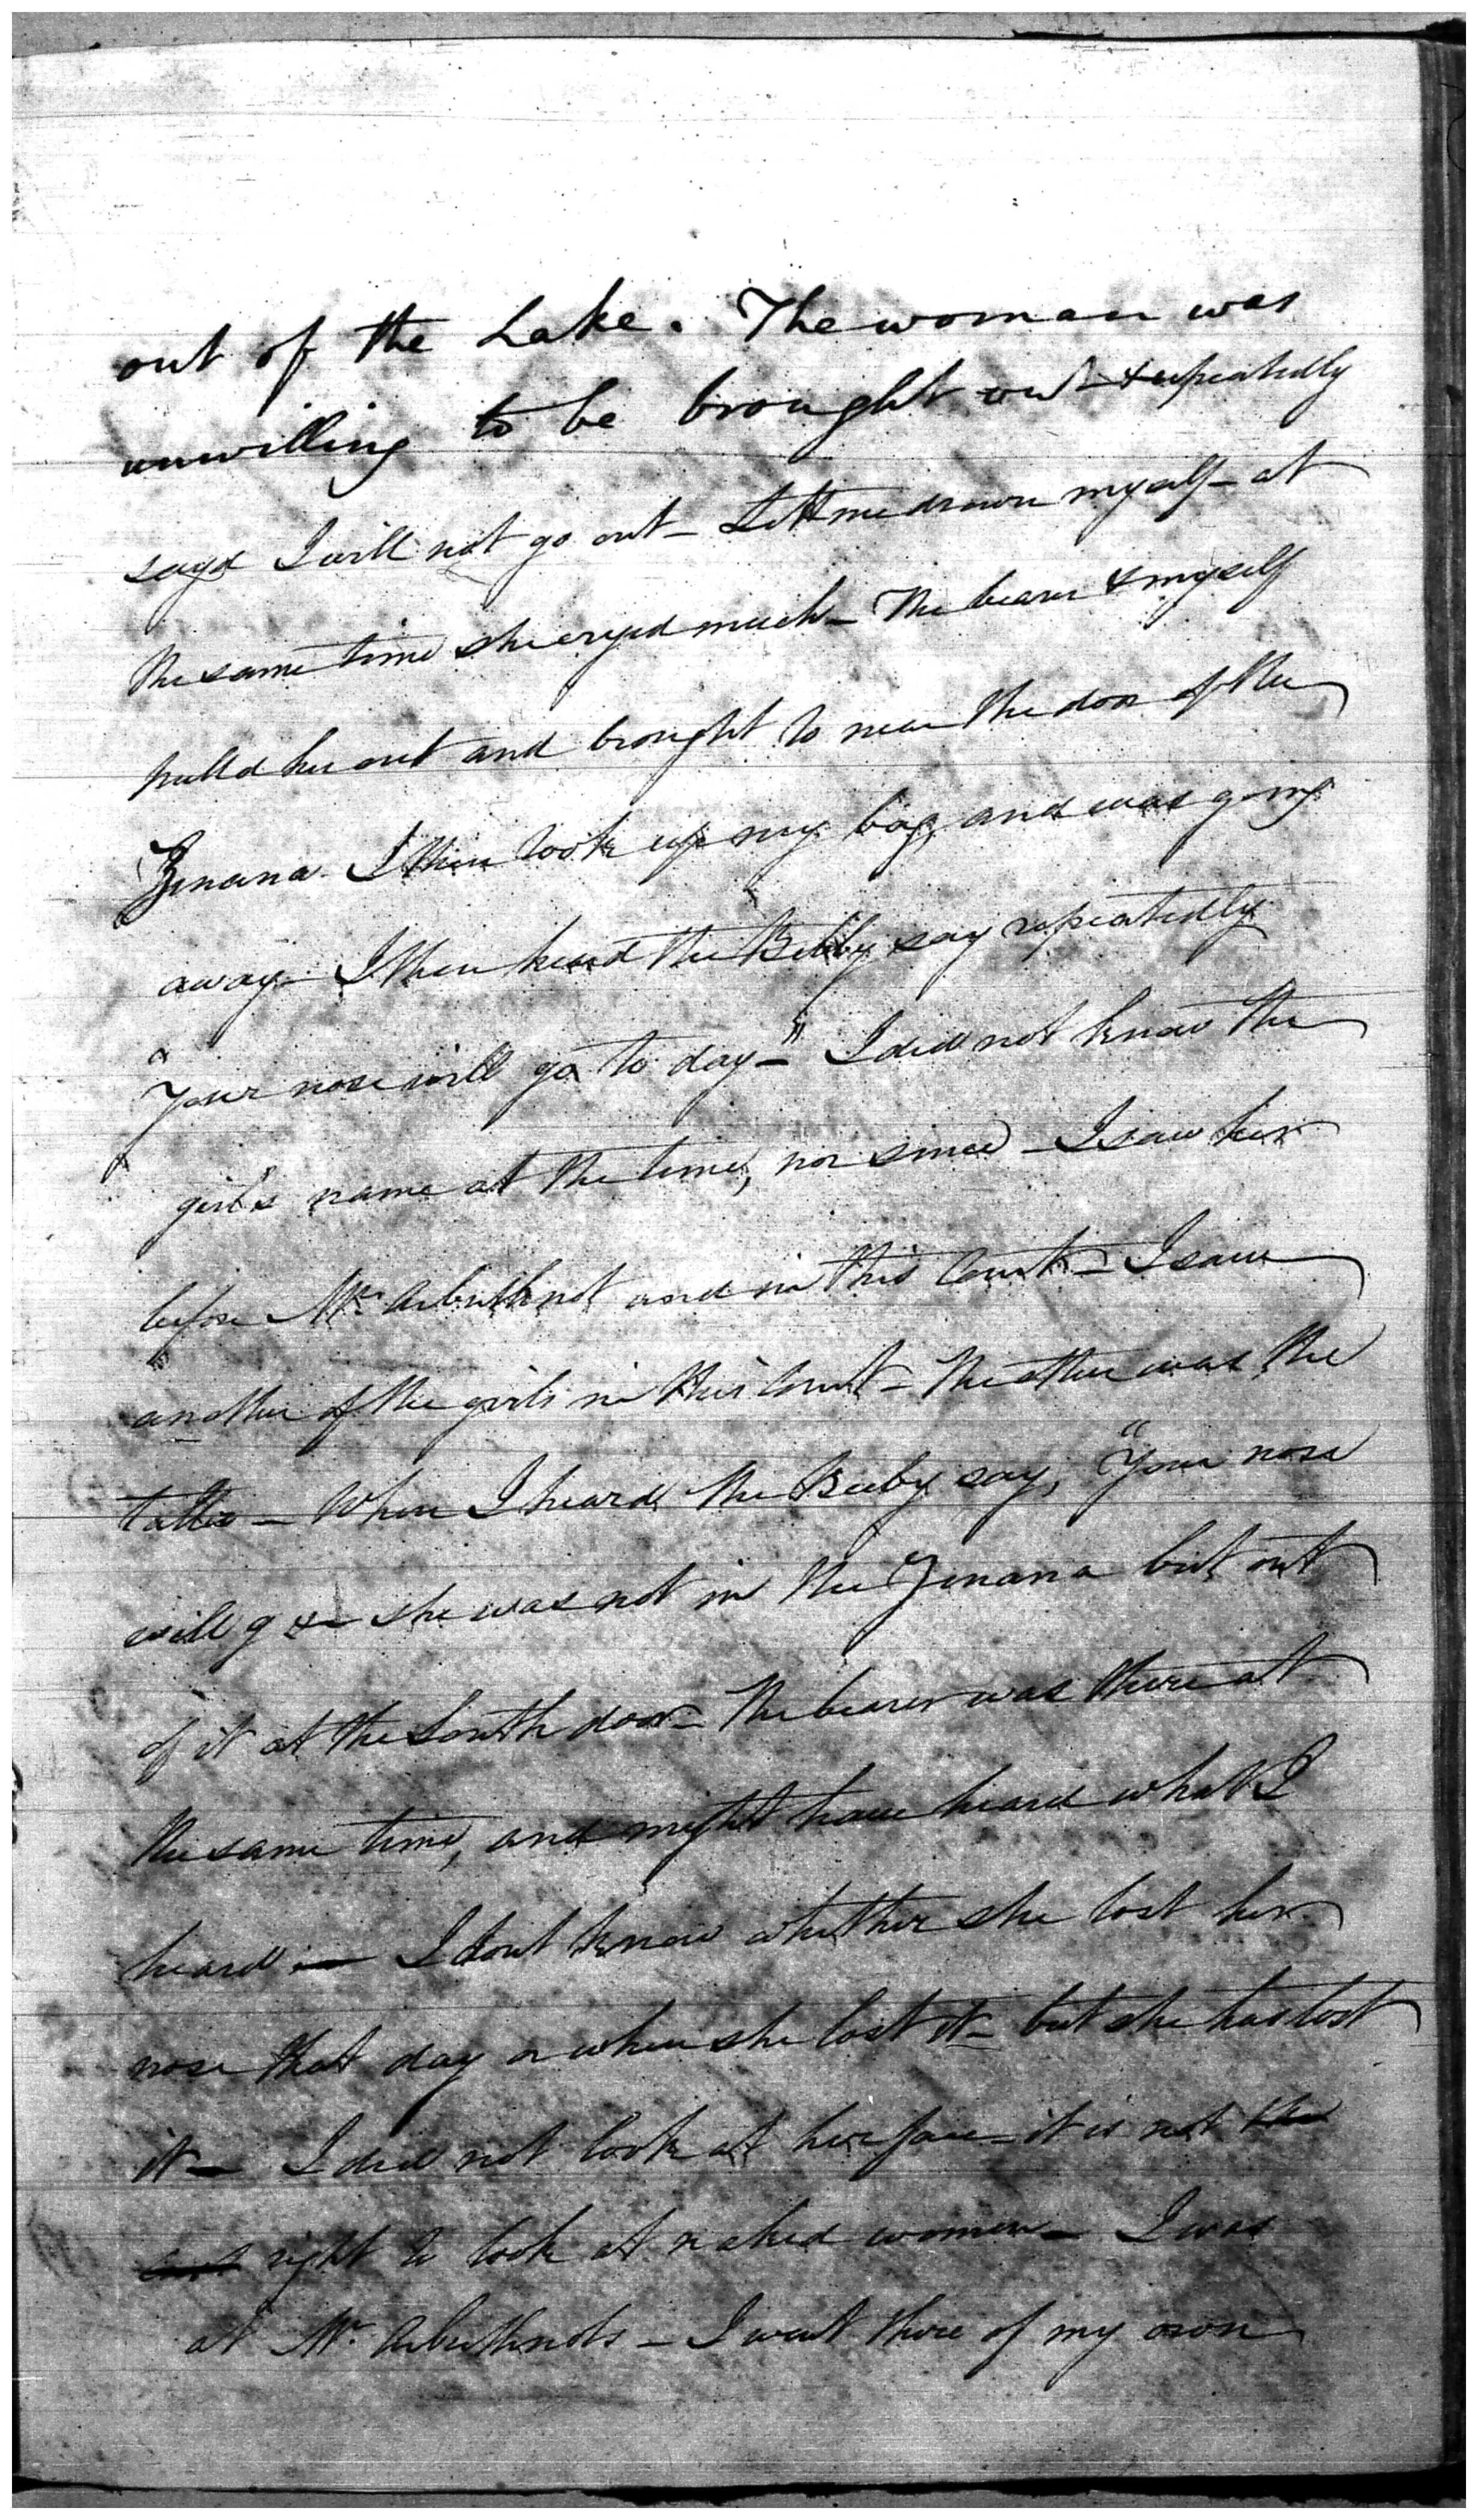 out of the Lake. The woman was
unwilling to be brought out & repeatedly
sayd I will not go out – Lett me drown myself – at
the same time she cryed much – The bearer & myself
pulld her out and brought to near the door of the
Zenana. I then took up my bag and was going
away – I then heard the Beeby say repeatedly
"Your nose will go to day –" I did not know the
girl's name at the time, nor since – I saw her
before Mr. Arbuthnot and in this Court – I saw
another of the girls in this Court – The other was the
taller – When I heard the Beeby say, "Your nose
will go – she was not in the Zenana but out
of it at the South door – The bearer was there at
the same time, and might have heard what I
heard – I dont know whether she lost her
nose that day or when she lost it – but she has lost
it – I did not look at her face – it is not
right to look at naked women – I was
at Mr. Arbuthnots – I went there of my own